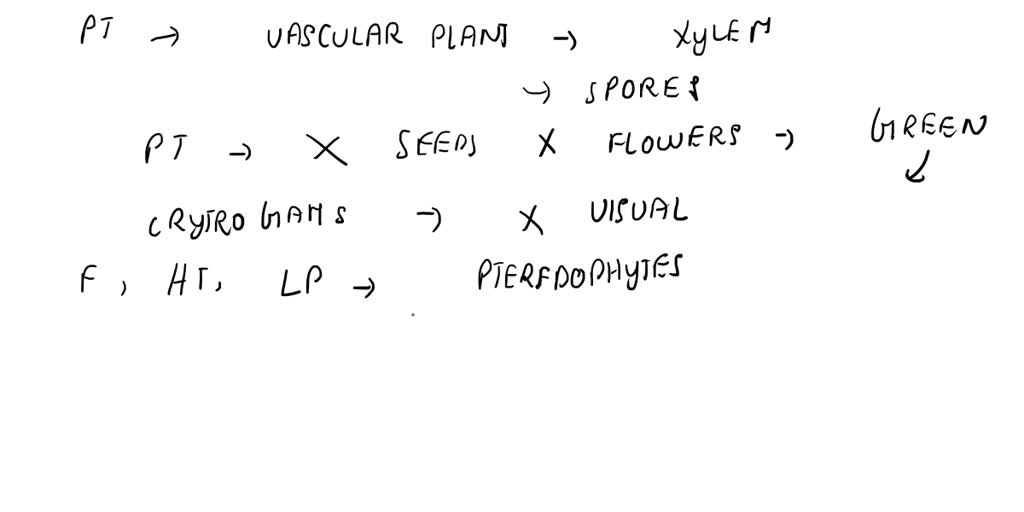 PT → VASCULAR PLANT → XyLEM
→ SPORES
PT → X SEEDS X FLOWERS → GREEN
CRYTROGAMS → X VISUAL
F, HT, LP → PTEREDOPHYTES